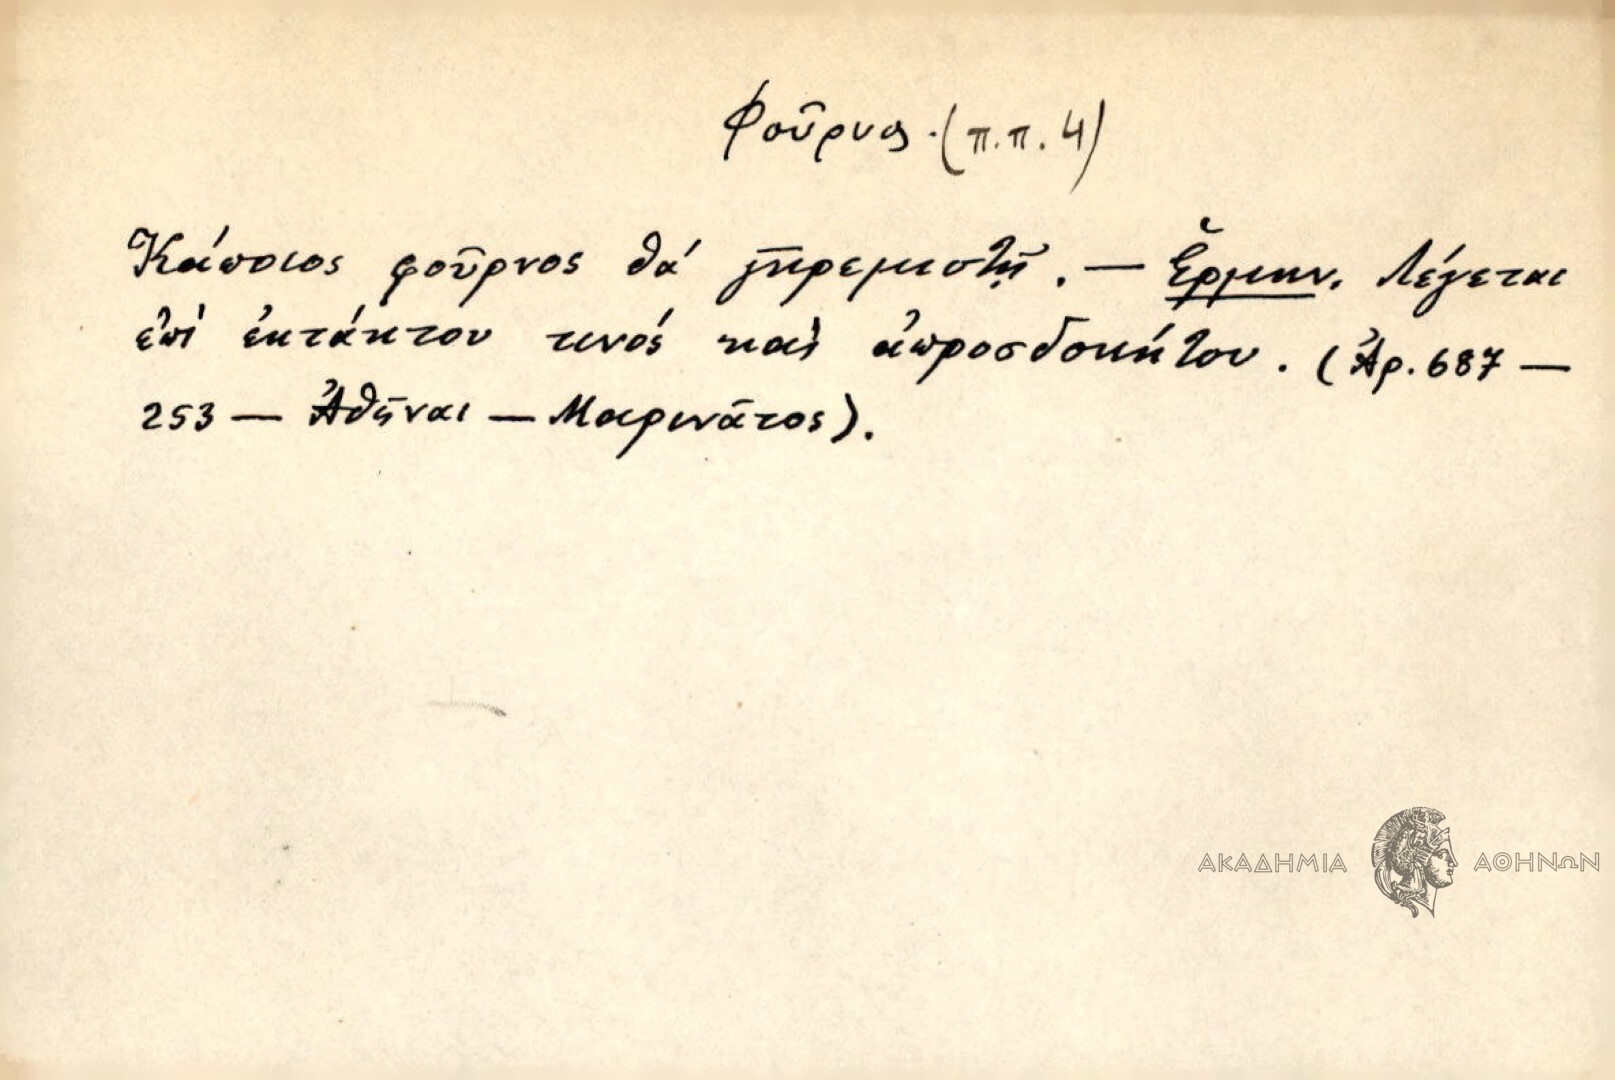 Φοῦρνος. (π.π. 4)
Κάποιος φοῦρνος θά γκρεμιστῇ. — Ἑρμην. Λέγεται
ἐπί ἐκτάκτου τινός καί ἀπροσδοκήτου. (Ἀρ. 687 —
253 — Ἀθῆναι — Μαρινᾶτος).
ΑΚΑΔΗΜΙΑ ΑΘΗΝΩΝ